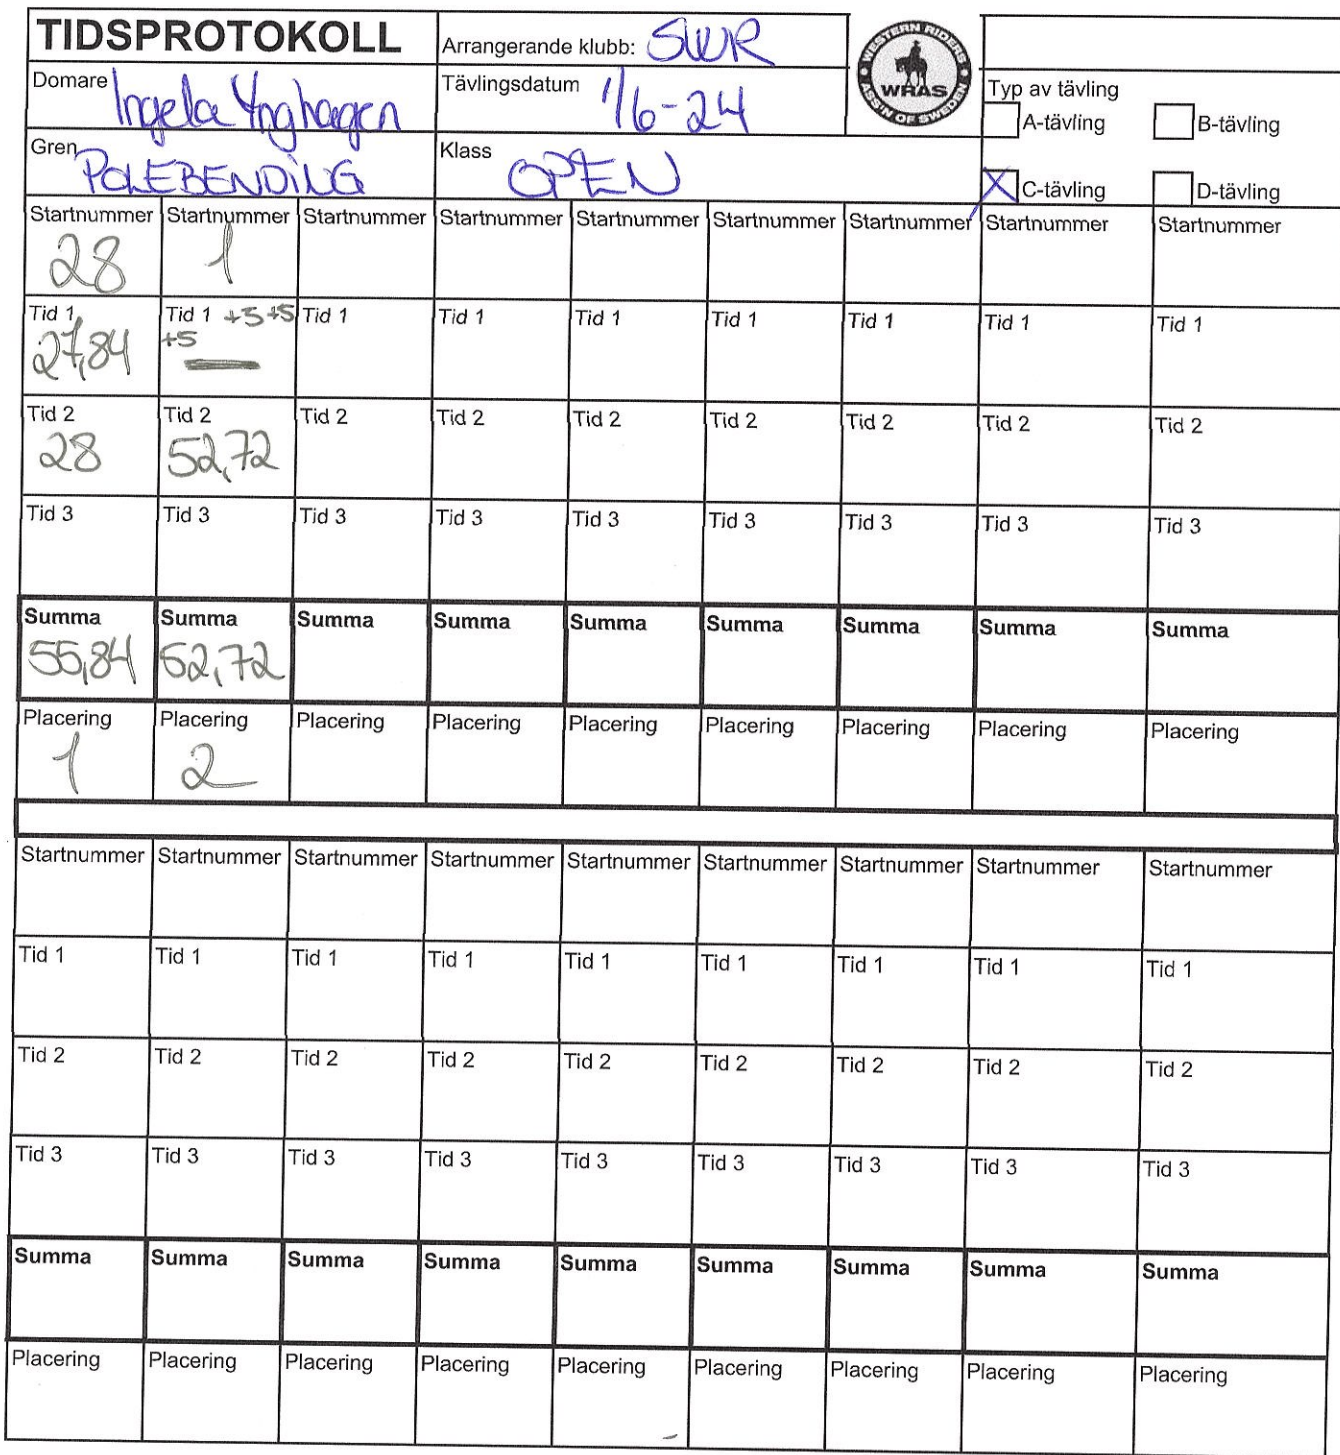 TIDSPROTOKOLL
Arrangerande klubb: SWR
WESTERN RIDERS
WRAS
ASS'N OF SWEDEN
Domare Ingela Ynghagen
Tävlingsdatum 1/6-24
Typ av tävling
A-tävling B-tävling
Gren POLEBENDING
Klass OPEN
X C-tävling D-tävling
Startnummer Startnummer Startnummer Startnummer Startnummer Startnummer Startnummer Startnummer Startnummer
28 1
Tid 1 Tid 1 +5 +5 Tid 1 Tid 1 Tid 1 Tid 1 Tid 1 Tid 1 Tid 1
27,84 +5 —
Tid 2 Tid 2 Tid 2 Tid 2 Tid 2 Tid 2 Tid 2 Tid 2 Tid 2
28 52,72
Tid 3 Tid 3 Tid 3 Tid 3 Tid 3 Tid 3 Tid 3 Tid 3 Tid 3
Summa Summa Summa Summa Summa Summa Summa Summa Summa
55,84 52,72
Placering Placering Placering Placering Placering Placering Placering Placering Placering
1 2
Startnummer Startnummer Startnummer Startnummer Startnummer Startnummer Startnummer Startnummer Startnummer
Tid 1 Tid 1 Tid 1 Tid 1 Tid 1 Tid 1 Tid 1 Tid 1 Tid 1
Tid 2 Tid 2 Tid 2 Tid 2 Tid 2 Tid 2 Tid 2 Tid 2 Tid 2
Tid 3 Tid 3 Tid 3 Tid 3 Tid 3 Tid 3 Tid 3 Tid 3 Tid 3
Summa Summa Summa Summa Summa Summa Summa Summa Summa
Placering Placering Placering Placering Placering Placering Placering Placering Placering